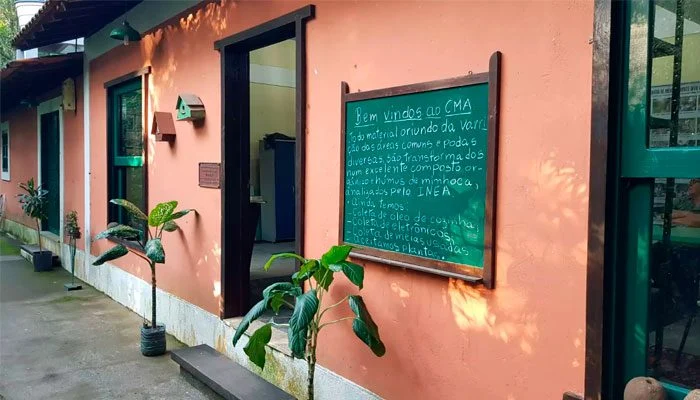 Bem vindos ao CMA
Todo material oriundo da varri
ção das áreas comuns e podas
diversas, são transforma dos
num exelente composto, or-
gânico e húmus de minhoca,
analizados pelo INEA
ainda temos:
Coleta de oleo de cozinha;
Coleta de eletrônicos,
Coleta de meias usadas
Aceitamos plantas